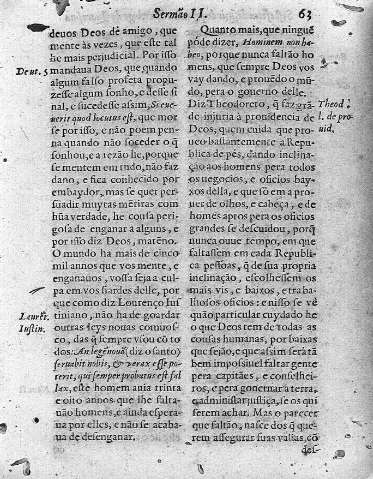 Sermão II. 63
devos Deos dè amigo, que
mente às vezes, que este tal
he mais perjudicial. Por isso
Deut. 5 mandava Deos, que quando
algum falso profeta propu-
zesse algum sonho, e desse si
nal, e sucedesse assim,
verit quod locutus est, que mor
se por isso, e não poem pen-
na quando não soceder o q̃
sonhou, e a rezão he, porque
se mentem em tudo, não faz
dano, e fica conhecido por
embaydor, mas se quer per-
suadir muytas mẽtiras com
hũa verdade, he cousa peri-
gosa de enganar a alguns, e
por isso diz Deos, matẽno.
O mundo ha mais de cinco
mil annos que vos mente, e
enganavos, vossa seja a cul-
pa em vos fiardes delle, por
que como diz Lourenço Jus
Laurẽt. Iustin. tiniano, não ha de goardar
outras leys novas comnos-
co, das q̃ sempre usou cõ to
dos: (diz o santo)
servabit nobis, & verax esse po-
terit, qui semper probatus est fal
lax, este homem avia trinta
e oito annos que lhe falta-
não homens, e ainda espera-
va por elles, e não se acaba-
va de desenganar.
Quanto mais, que ninguẽ
póde dizer, Hominem non ha-
beo, porque nunca faltão ho
mens, que sempre Deos vos
vay dando, e provẽdo o mũ-
do, pera o governo delle.
Diz Theodoreto, q̃ faz grã- Theod
de injuria à providencia de l. de pro
Deos, quem cuida que pro- vid.
veo bastantemente a Repu-
blica de pés, dando inclina-
ção aos homens pera todos
os negocios, e oficios bay-
xos della, e que só em a pro-
ver de olhos, e cabeça, e de
homẽs aptos pera os oficios
grandes se descuidou, porq̃
nunca ouve tempo, em que
faltassem em cada Republi-
ca pessoas, q̃ de sua propria
inclinação, escolhessem os
mais vis, e baixos, e traba-
lhosos oficios: e nisso se vè
quão particular cuydado he
o que Deos tem de todas as
cousas humanas, por baixas
que sejão, e que assim será tã
bem impossivel faltar gente
pera capitães, e conselhei-
ros, e pera governar a terra,
e administar justiça, se os qui
serem achar. Mas o parecer
que faltão, nasce dos q̃ que-
rem assegurar suas valias, cõ
des-